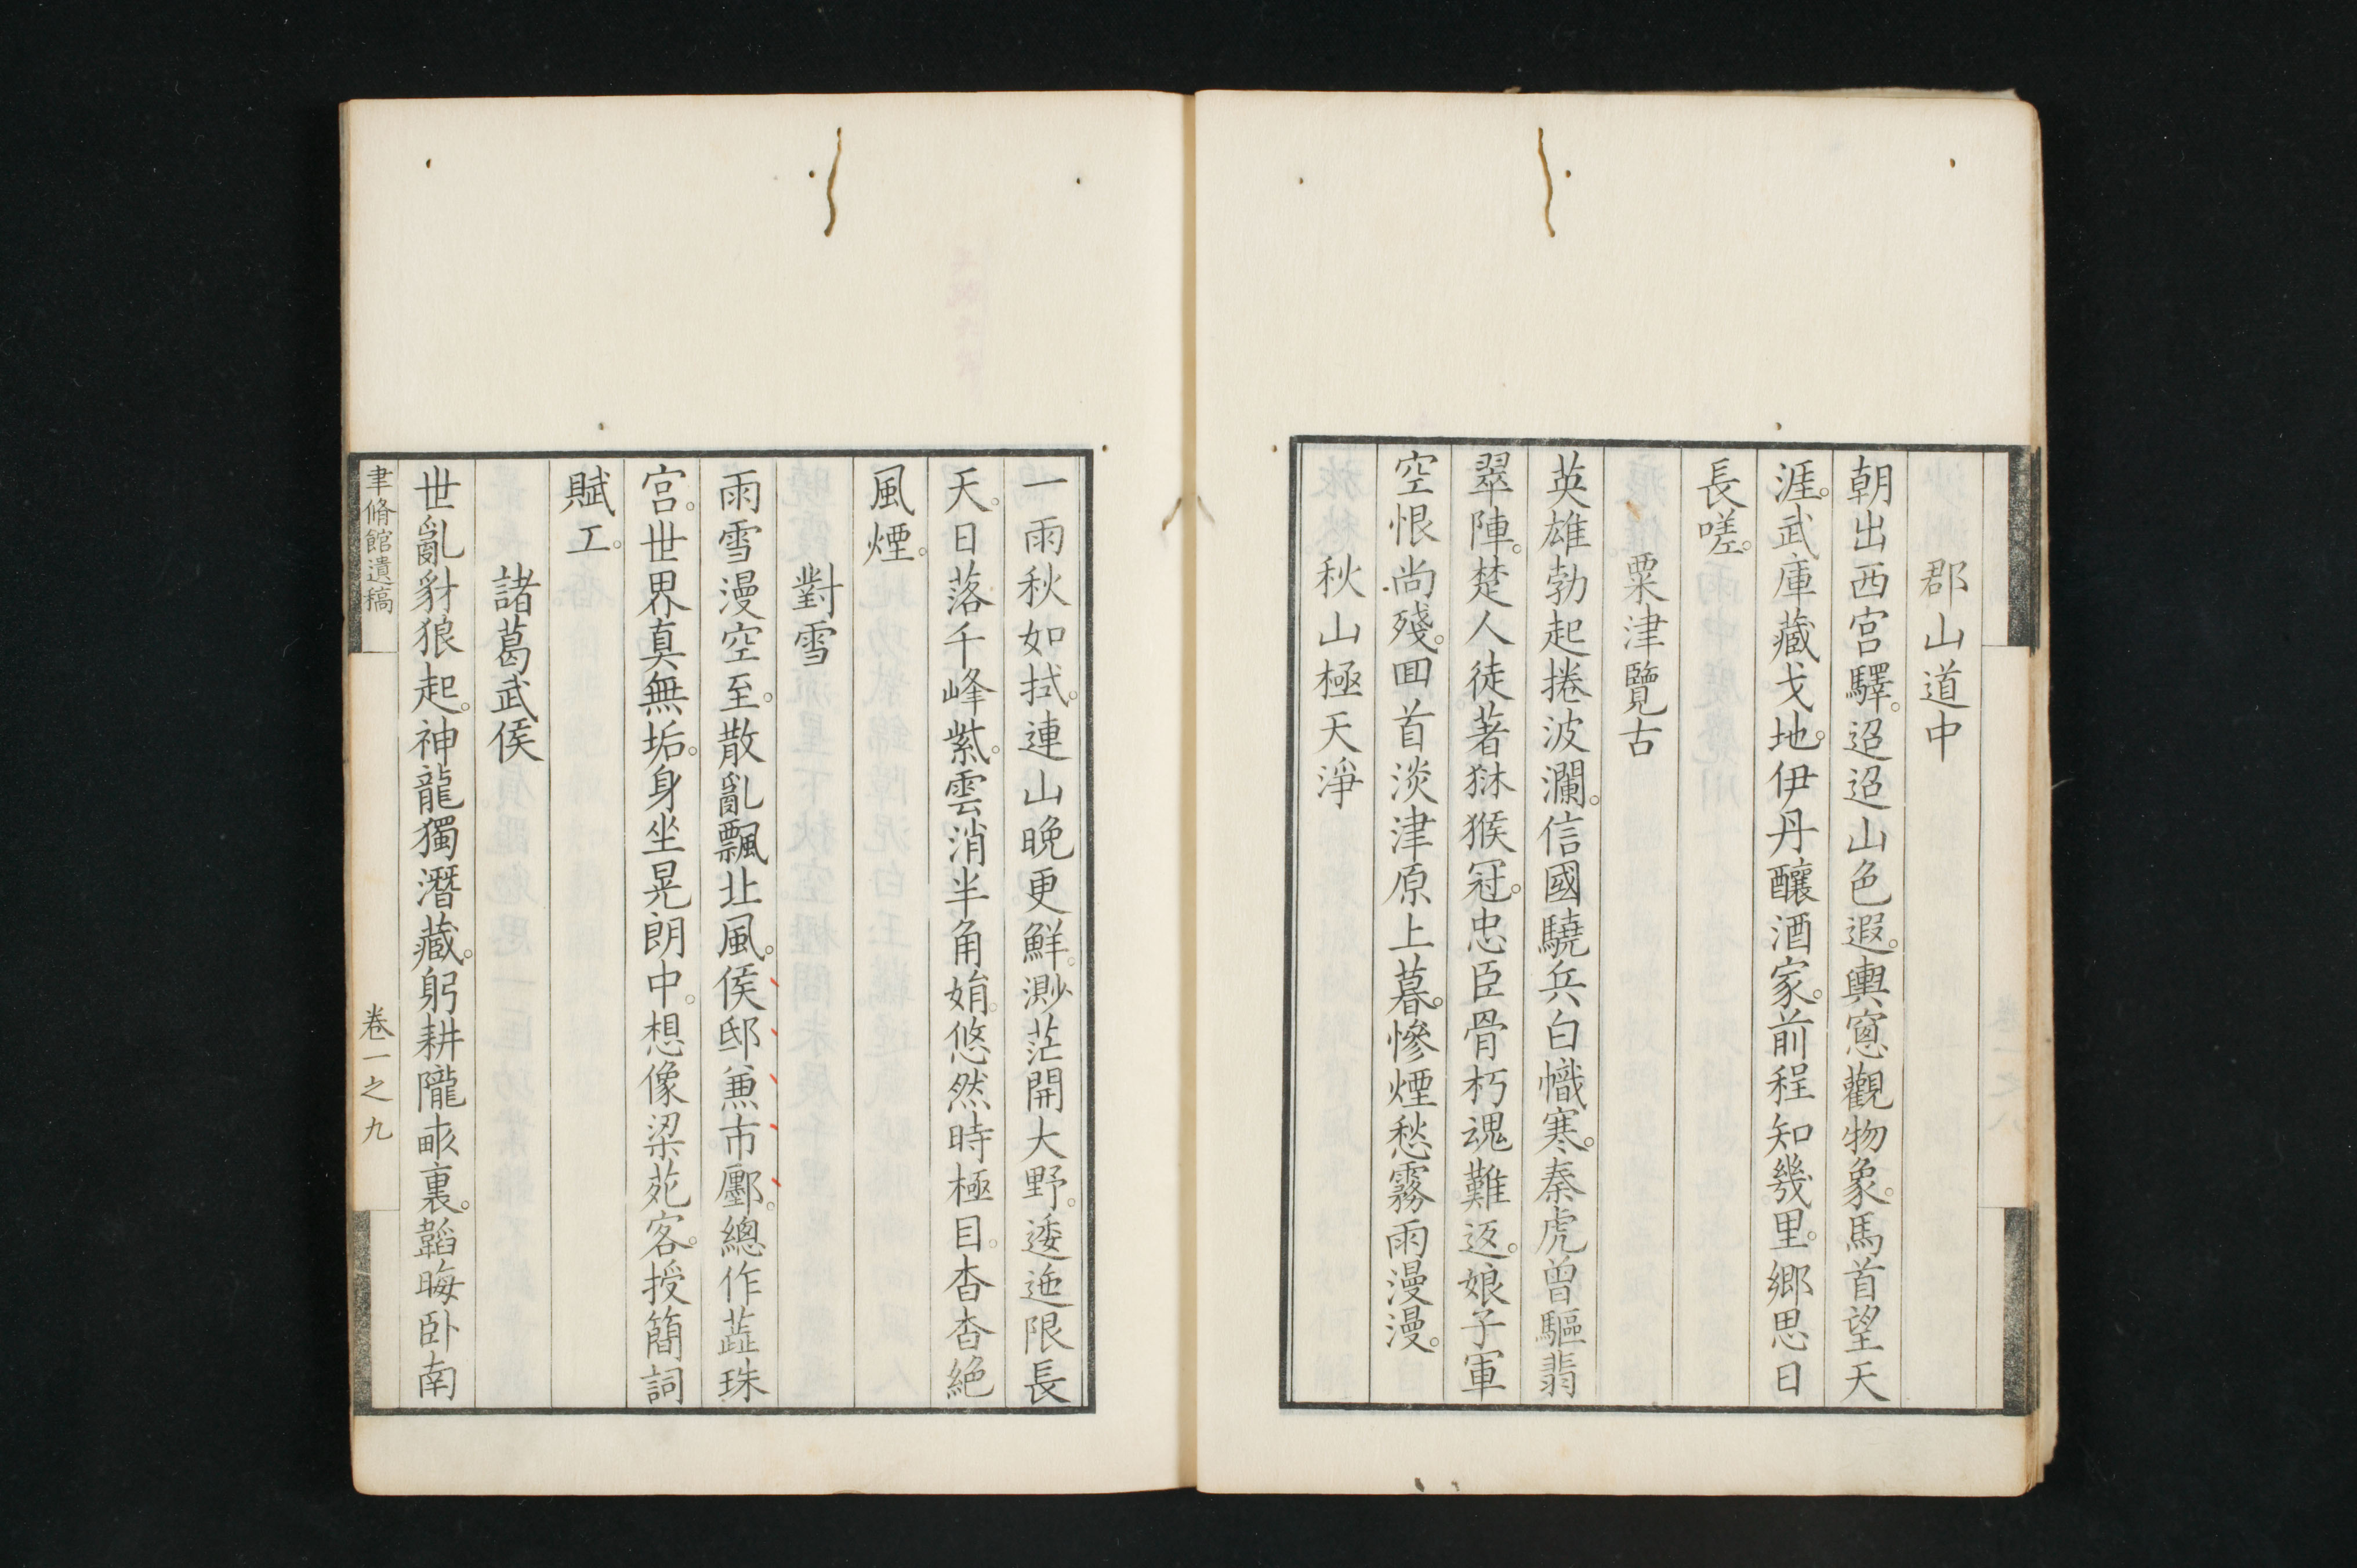 郡山道中
朝出西宮驛。迢迢山色遐。輿窻觀物象。馬首望天
涯。武庫藏戈地。伊丹釀酒家。前程知幾里。鄉思日
長嗟。
粟津覽古
英雄勃起捲波瀾。信國驍兵白幟寒。秦虎曾驅翡
翠陣。楚人徒著猕猴冠。忠臣骨朽魂難返。娘子軍
空恨尚殘。囬首淡津原上暮。慘煙愁霧雨漫漫。
秋山極天淨
一雨秋如拭。連山晚更鮮。渺茫開大野。逶迤限長
天。日落千峰紫。雲消半角娟。悠然時極目。杳杳絕
風煙。
對雪
雨雪漫空至。散亂飄北風。侯邸兼市鄽。總作蕋珠
宮。世界真無垢。身坐晃朗中。想像梁苑客。授簡詞
賦工。
諸葛武侯
世亂豺狼起。神龍獨潛藏。躬耕隴畞裏。韜晦臥南
聿脩館遺稿
卷一之九